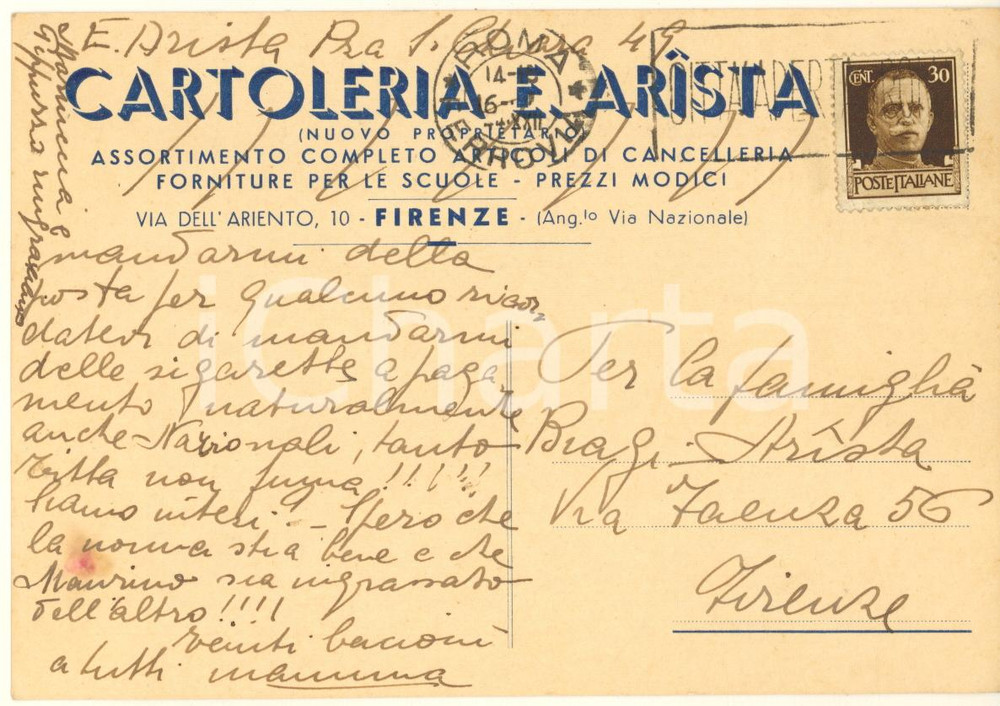 E. Arista Pza S. 49
CARTOLERIA E. ARÎSTA
(NUOVO PROPRIETARIO)
ASSORTIMENTO COMPLETO ARTICOLI DI CANCELLERIA
FORNITURE PER LE SCUOLE - PREZZI MODICI
VIA DELL'ARIENTO, 10 - FIRENZE - (Ang.lo Via Nazionale)
ROMA
FERROVIA
CENT. 30
POSTE ITALIANE
mandarmi della
posta per qualcuno ricor
datevi di mandarmi
delle sigarette a paga
mento naturalmente
anche Nazionali, tanto
Titta non fuma !!!!!!
Siamo intesi? - Spero che
la nonna stia bene e che
Maurino sia ingrassato
dell'altro!!!!
venti bacioni
a tutti mamma
Per la famiglia
Biagi - Arîsta
Via Faenza 56
Firenze
iCharta